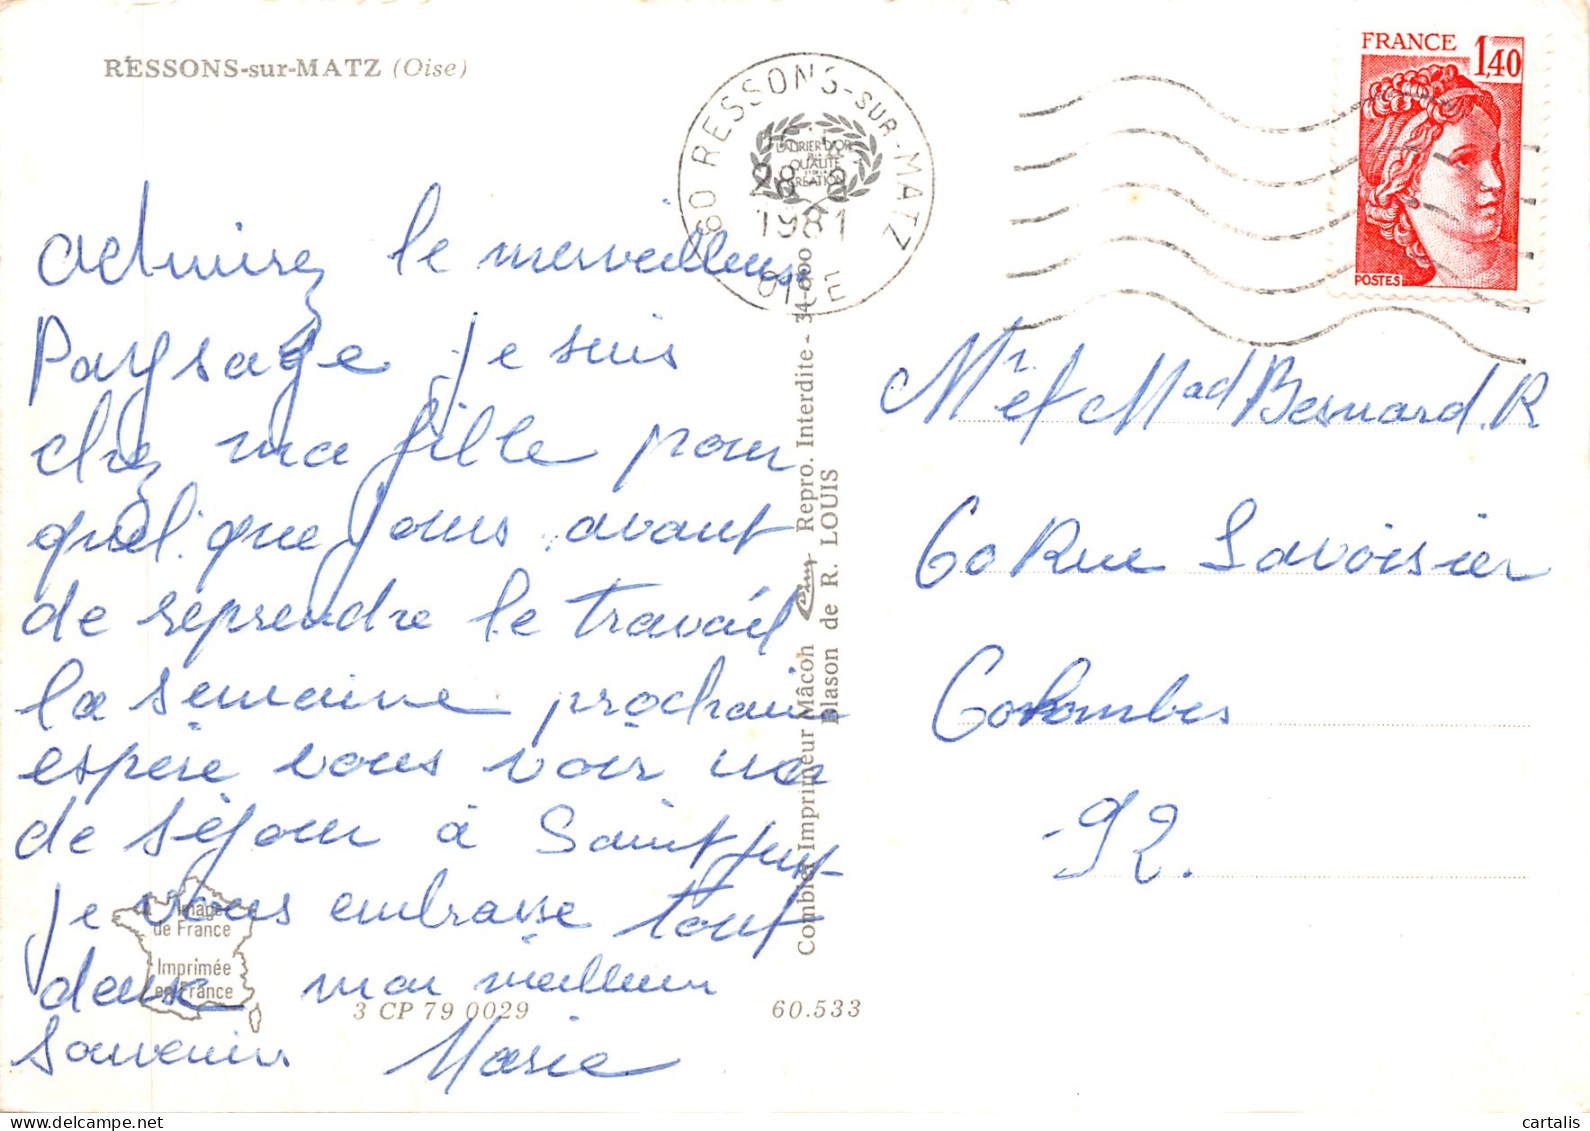 RESSONS-sur-MATZ (Oise)
60 RESSONS-SUR-MATZ
OISE
28-8
1981
LAURIER D'OR
QUALITÉ
CRÉATION
FRANCE 1,40
POSTES
admirez le merveilleux
Paysage je suis
chez ma fille pour
quel que jours avant
de reprendre le travail
la semaine prochaine
espère vous voir un
de séjour à Saint Just
je vous embrasse tout
deux mon meilleur
Souvenir Marie
Mr et Mad Besnard. R
60 Rue Lavoisier
Colombes
92.
Combier Imprimeur Mâcon Cim Repro. Interdite - 34-600
Blason de R. LOUIS
Image
de France
Imprimée
en France
3 CP 79 0029
60.533
cartalis